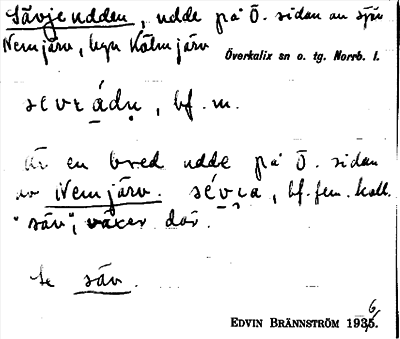 Sävjeudden, udde på Ö. sidan av sjön
Nemjärv, byn Kölmjärv
Överkalix sn o. tg. Norrb. l.
sevrádn, bf. m.
Är en bred udde på Ö. sidan
av Nemjärv. sévra, bf. fem. koll.
"säv", växer där.
Se säv.
EDVIN BRÄNNSTRÖM 1936.